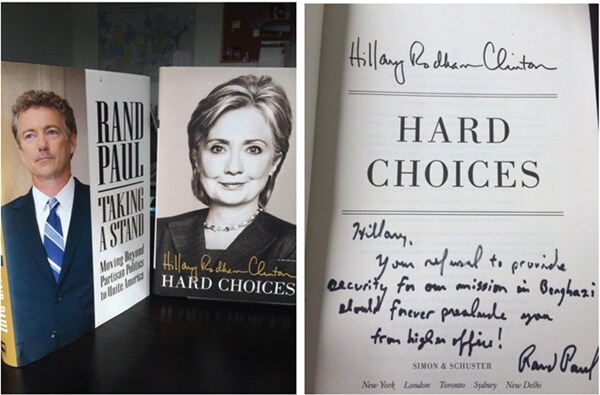 RAND
PAUL
TAKING
A STAND
Moving Beyond
Partisan Politics
to Unite America
Hillary Rodham Clinton
HARD CHOICES
Hillary Rodham Clinton
HARD
CHOICES
Hillary,
Your refusal to provide
security for our mission in Benghazi
should forever preclude you
from higher office!
Rand Paul
SIMON & SCHUSTER
New York London Toronto Sydney New Delhi